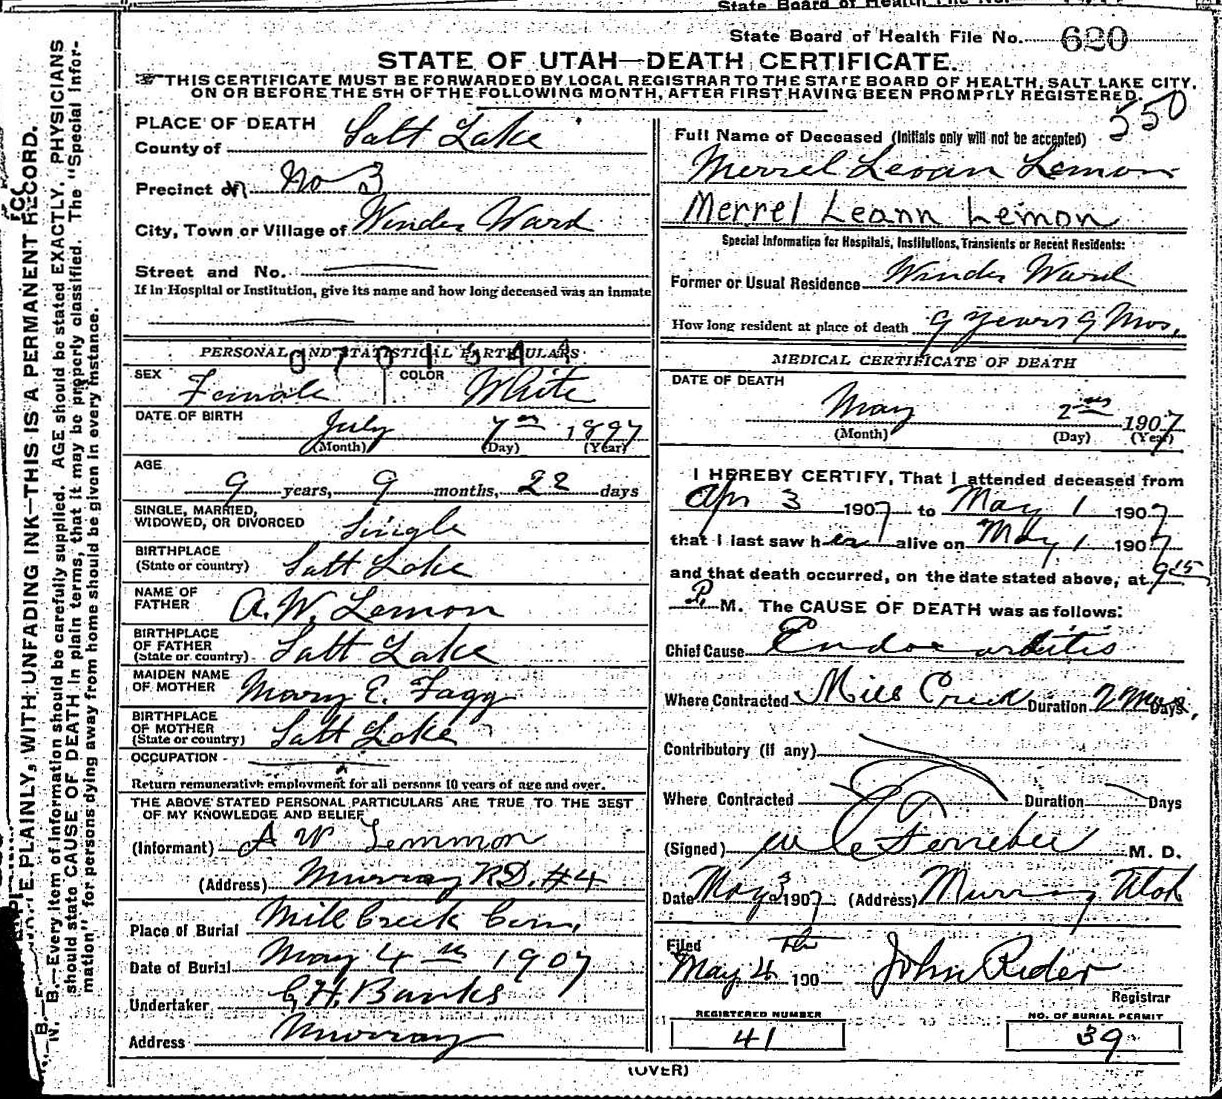 State Board of Health File No. 620
STATE OF UTAH—DEATH CERTIFICATE.
THIS CERTIFICATE MUST BE FORWARDED BY LOCAL REGISTRAR TO THE STATE BOARD OF HEALTH, SALT LAKE CITY,
ON OR BEFORE THE 5TH OF THE FOLLOWING MONTH, AFTER FIRST HAVING BEEN PROMPTLY REGISTERED.
550
N. B.—Every item of information should be carefully supplied. AGE should be stated EXACTLY. PHYSICIANS
should state CAUSE OF DEATH in plain terms, that it may be properly classified. The "Special Infor-
mation" for persons dying away from home should be given in every instance.
PLAINLY, WITH UNFADING INK—THIS IS A PERMANENT RECORD.
PLACE OF DEATH
County of Salt Lake
Precinct of No 3
City, Town or Village of Winder Ward
Street and No.
If in Hospital or Institution, give its name and how long deceased was an inmate
PERSONAL AND STATISTICAL PARTICULARS
SEX Female COLOR White
DATE OF BIRTH July 7th 1897
(Month) (Day) (Year)
AGE
9 years, 9 months, 22 days
SINGLE, MARRIED,
WIDOWED, OR DIVORCED Single
BIRTHPLACE
(State or country) Salt Lake
NAME OF
FATHER A. W. Lemon
BIRTHPLACE
OF FATHER
(State or country) Salt Lake
MAIDEN NAME
OF MOTHER Mary E. Fagg
BIRTHPLACE
OF MOTHER
(State or country) Salt Lake
OCCUPATION
Return remunerative employment for all persons 10 years of age and over.
THE ABOVE STATED PERSONAL PARTICULARS ARE TRUE TO THE BEST
OF MY KNOWLEDGE AND BELIEF
(Informant) A W Lemmon
(Address) Murray R.D. #4
Place of Burial Mill Creek Cem.
Date of Burial May 4th 1907
Undertaker Banks
Address Murray
Full Name of Deceased (Initials only will not be accepted)
Merrel Levan Lemon
Merrel Leann Lemon
Special Information for Hospitals, Institutions, Transients or Recent Residents:
Former or Usual Residence Winder Ward
How long resident at place of death 9 Years 9 Mos.
MEDICAL CERTIFICATE OF DEATH
DATE OF DEATH
May 2nd 1907
(Month) (Day) (Year)
I HEREBY CERTIFY, That I attended deceased from
Apr 3 1907 to May 1 1907
that I last saw her alive on May 1 1907
and that death occurred, on the date stated above, at 9 15
P. M. The CAUSE OF DEATH was as follows:
Chief Cause Endocarditis
Where Contracted Mill Creek Duration Days
Contributory (if any)
Where Contracted Duration Days
(Signed) M. D.
Date May 3 1907 (Address) Murray Utah
Filed
May 4th 190 John Rider
Registrar
REGISTERED NUMBER
41
NO. OF BURIAL PERMIT
39
(OVER)